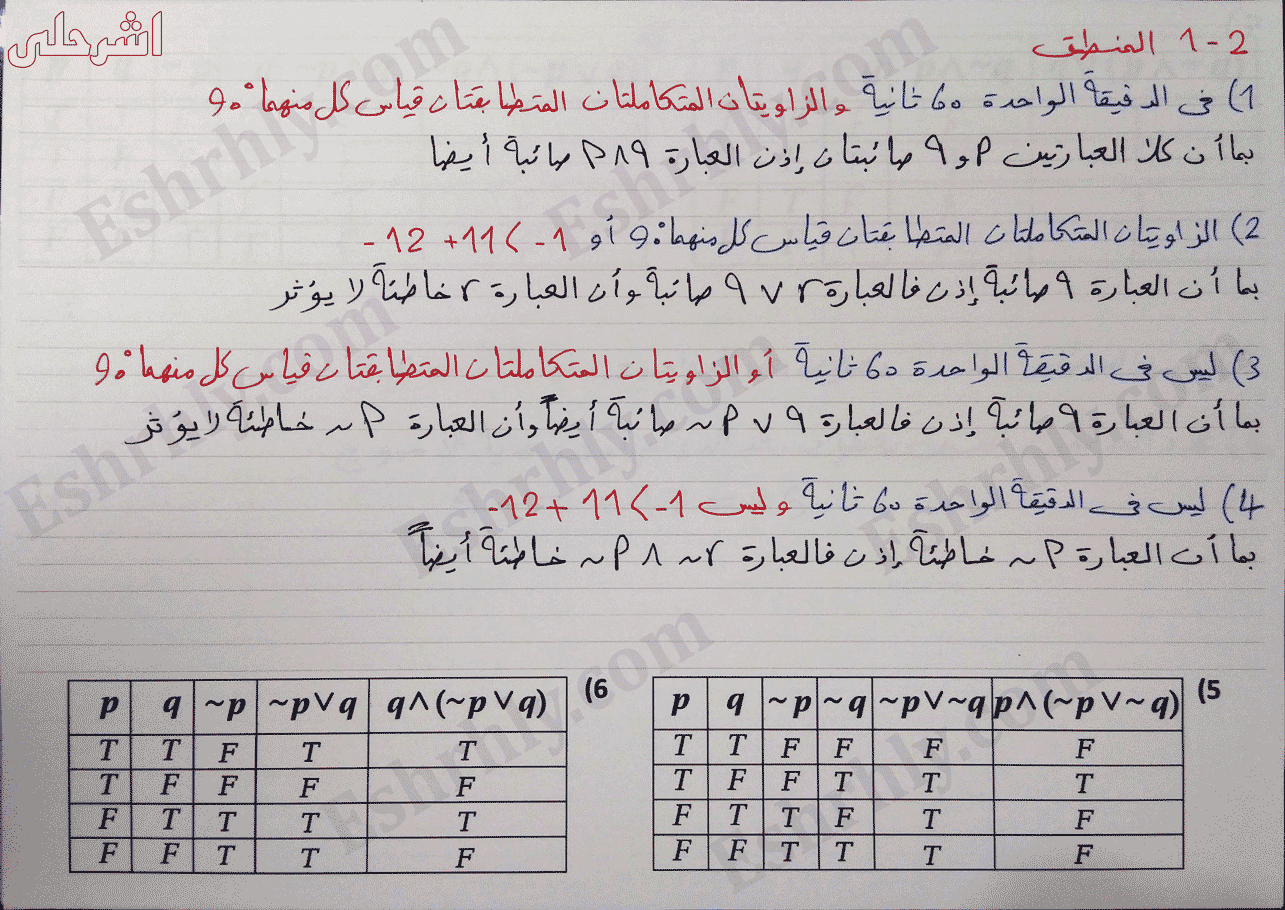 اشرحلي
1-2 المنطق
1) في الدقيقة الواحدة 60 ثانية والزاويتان المتكاملتان المتطابقتان قياس كل منهما 90°
بما أن كلا العبارتين p و q صائبتان إذن العبارة p∧q صائبة أيضا
2) الزاويتان المتكاملتان المتطابقتان قياس كل منهما 90° أو -12 +11 < -1
بما أن العبارة q صائبة إذن فالعبارة q ∨ r صائبة وأن العبارة r خاطئة لا يؤثر
3) ليس في الدقيقة الواحدة 60 ثانية أو الزاويتان المتكاملتان المتطابقتان قياس كل منهما 90°
بما أن العبارة q صائبة إذن فالعبارة ~p ∨ q صائبة أيضاً وأن العبارة ~p خاطئة لا يؤثر
4) ليس في الدقيقة الواحدة 60 ثانية وليس -12+ 11 < -1
بما أن العبارة ~p خاطئة إذن فالعبارة ~p ∧ ~r خاطئة أيضاً
(5
p q ~p ~q ~p∨~q p∧(~p∨~q)
T T F F F F
T F F T T T
F T T F T F
F F T T T F
(6
p q ~p ~p∨q q∧(~p∨q)
T T F T T
T F F F F
F T T T T
F F T T F
Eshrhly.com
Eshrhly.com
Eshrhly.com
Eshrhly.com
Eshrhly.com
Eshrhly.com
Eshrhly.com
Eshrhly.com